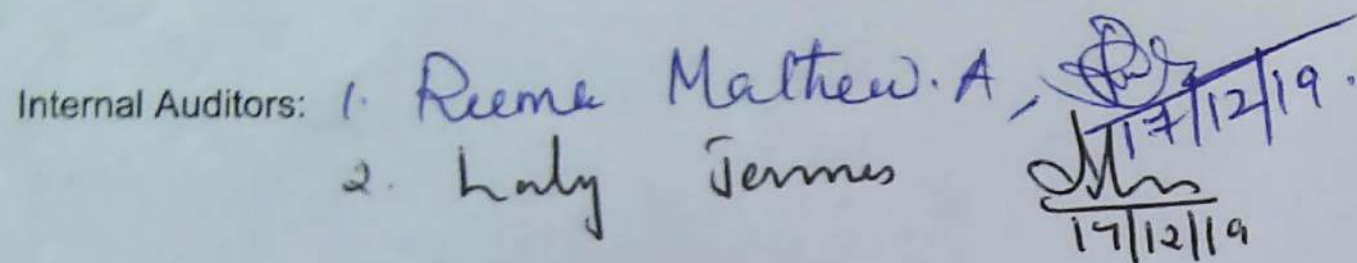 Internal Auditors: 1. Reema Mathew. A,
17/12/19.
2. Laly Jermes
17/12/19